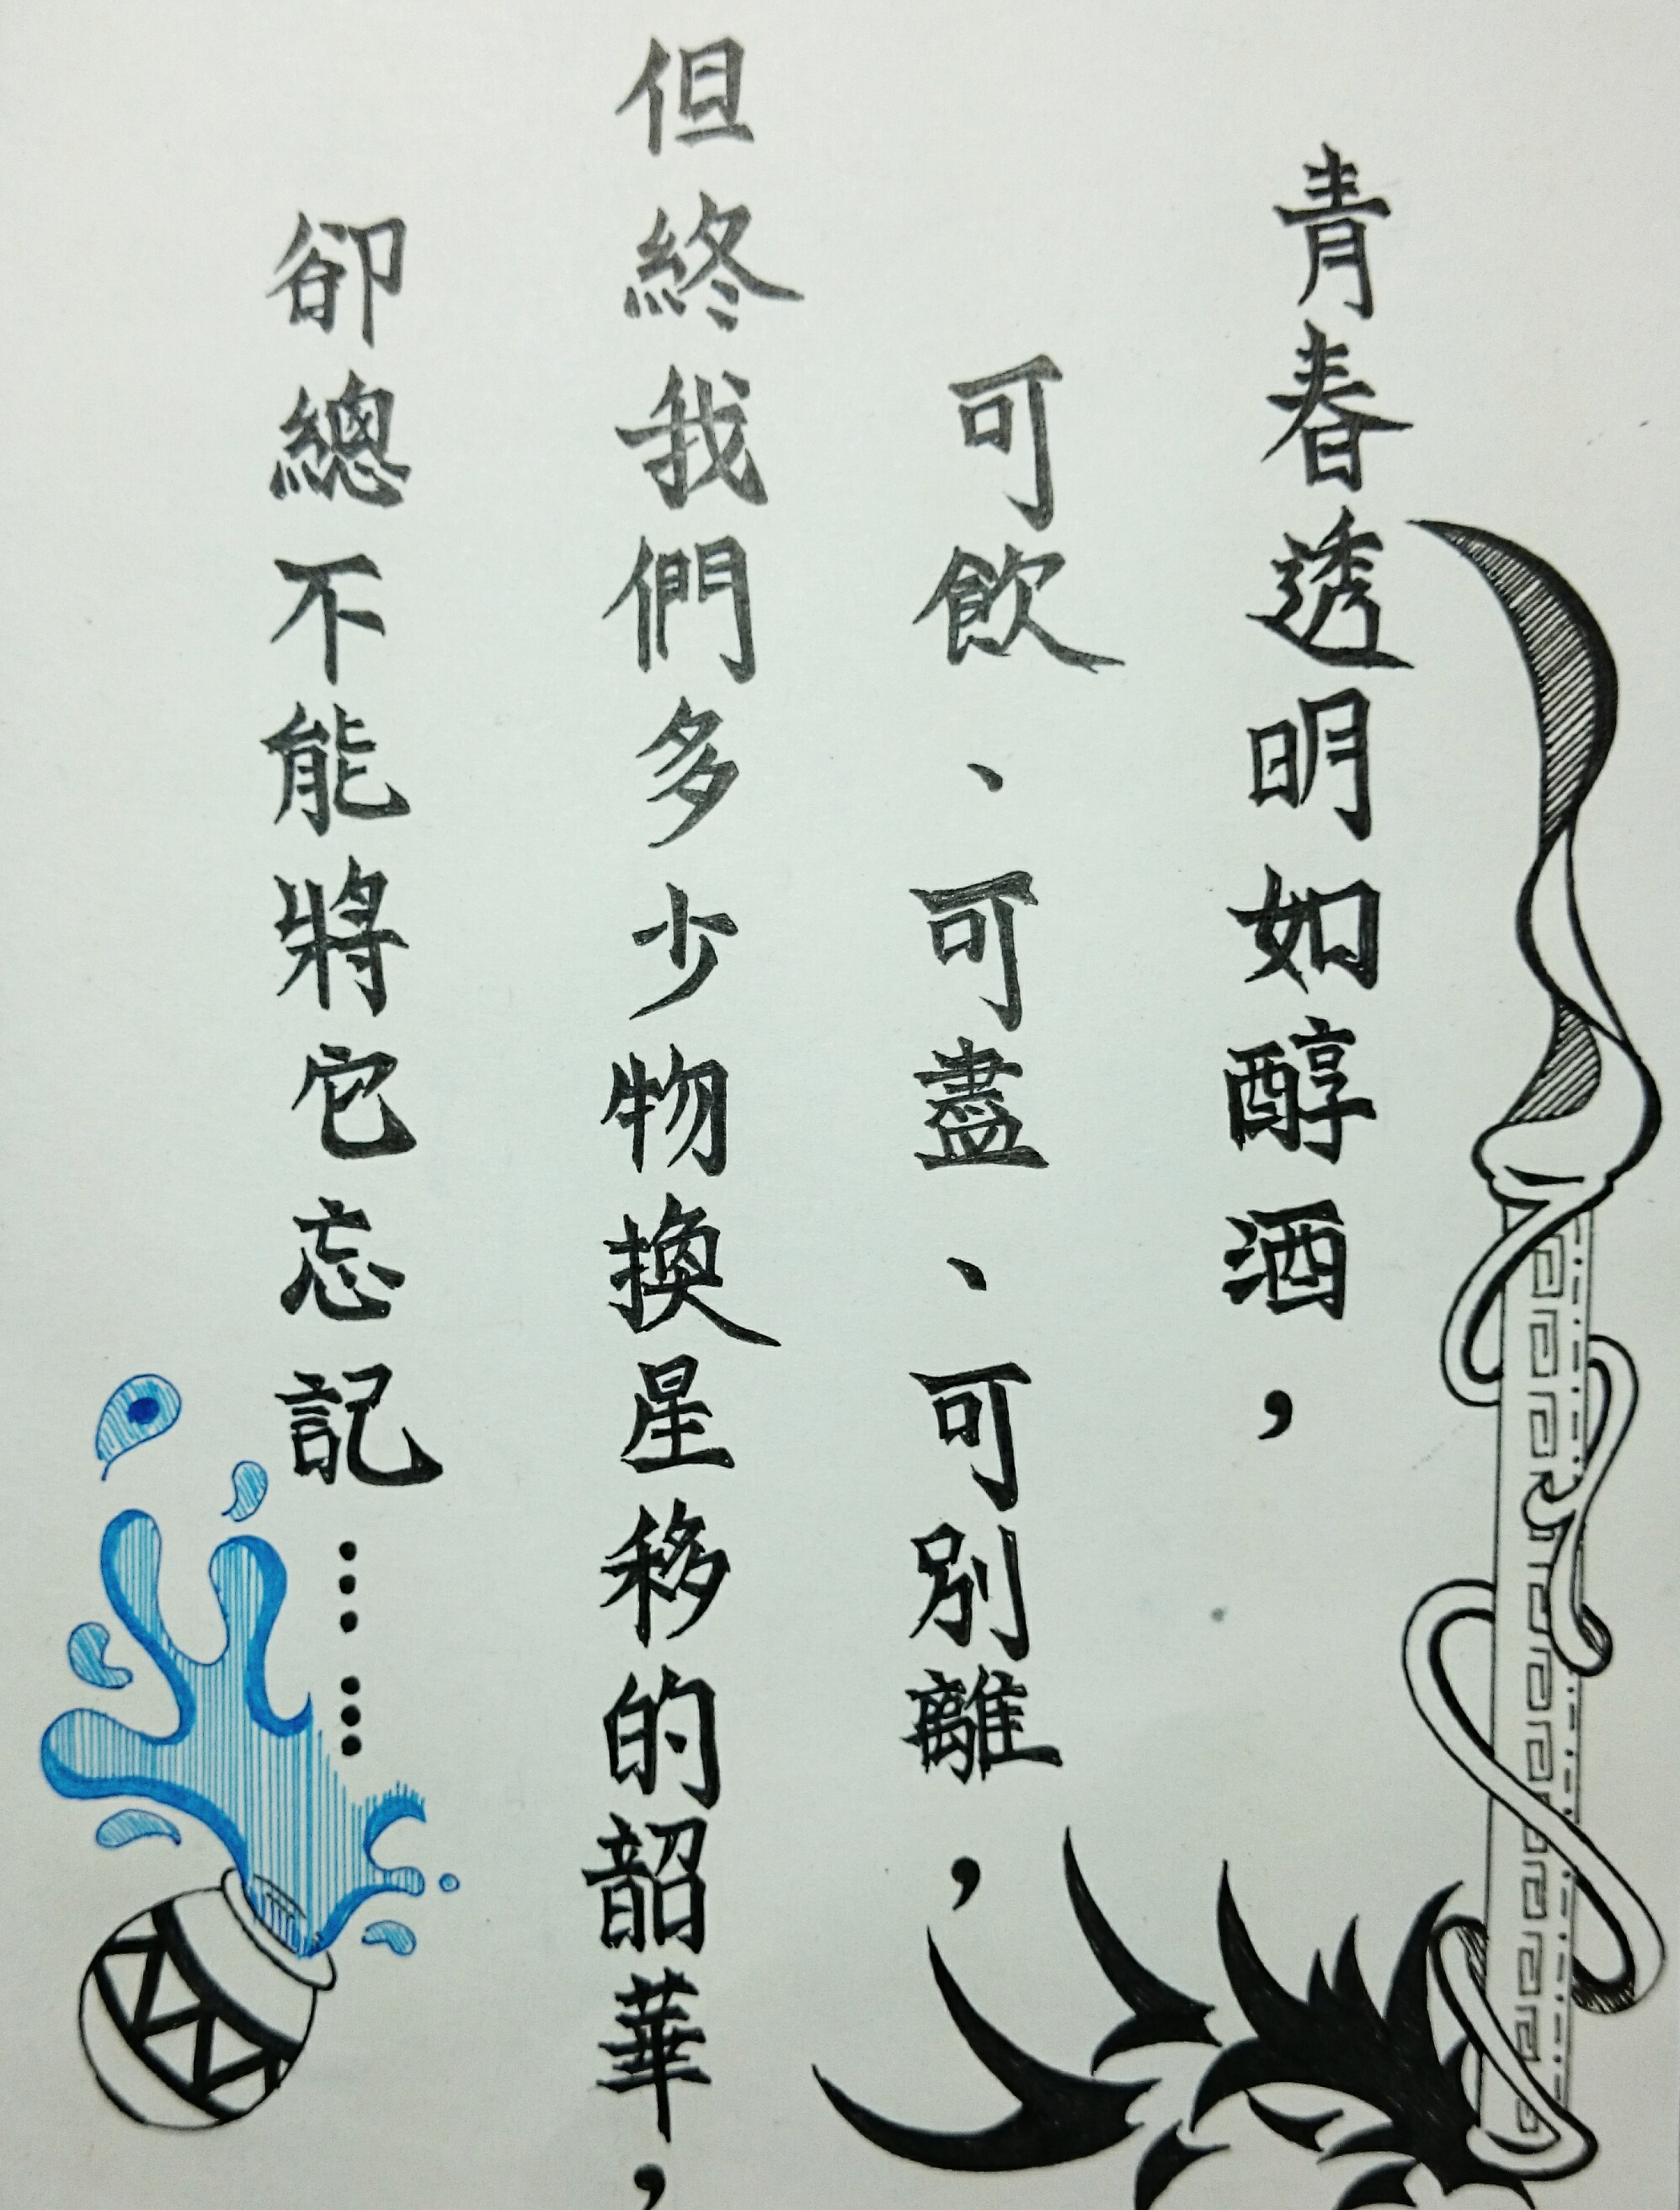 青春透明如醇酒，
可飲、可盡、可別離，
但終我們多少物換星移的韶華，
卻總不能將它忘記……